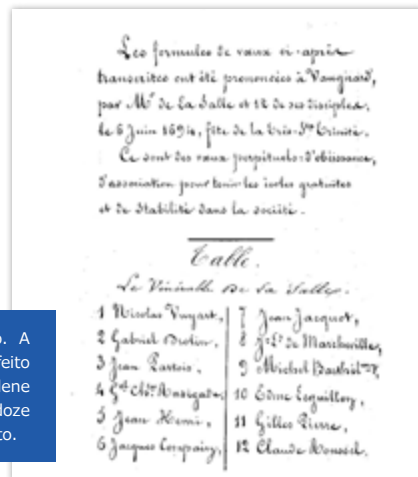 Les formules de vœux ci-après
transcrites ont été prononcées à Vaugirard,
par Mr de La Salle et 12 de ses disciples,
le 6 Juin 1694, fête de la très-Ste Trinité.
Ce sont des vœux perpétuels: d'obéissance,
d'association pour tenir les écoles gratuites
et de Stabilité dans la société.
Table.
Le Vénérable De La Salle.
1 Nicolas Vuyart,
2 Gabriel Drolin,
3 Jean Partois,
4 Gd Ch. Rasigade,
5 Jean Henri,
6 Jacques Compain,
7 Jean Jacquot,
8 de Marcheville,
9 Michel
10 Edme Leguillon,
11 Gilles Pierre,
12 Claude Roussel.
o. A
feito
lene
doze
to.